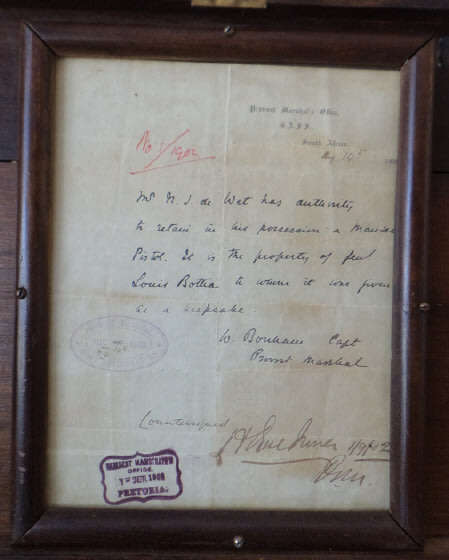 Provost Marshal's Office,
South Africa.
Aug 14th
No 1/1902
Mr N. J. de Wet has authority
to retain in his possession a Mauser
Pistol. It is the property of Genl
Louis Botha to whom it was given
as a keepsake.
W. Bonham Capt
Provost Marshal
Countersigned
1/9/02
OFFICE,
1 SEP. 1902
PRETORIA.